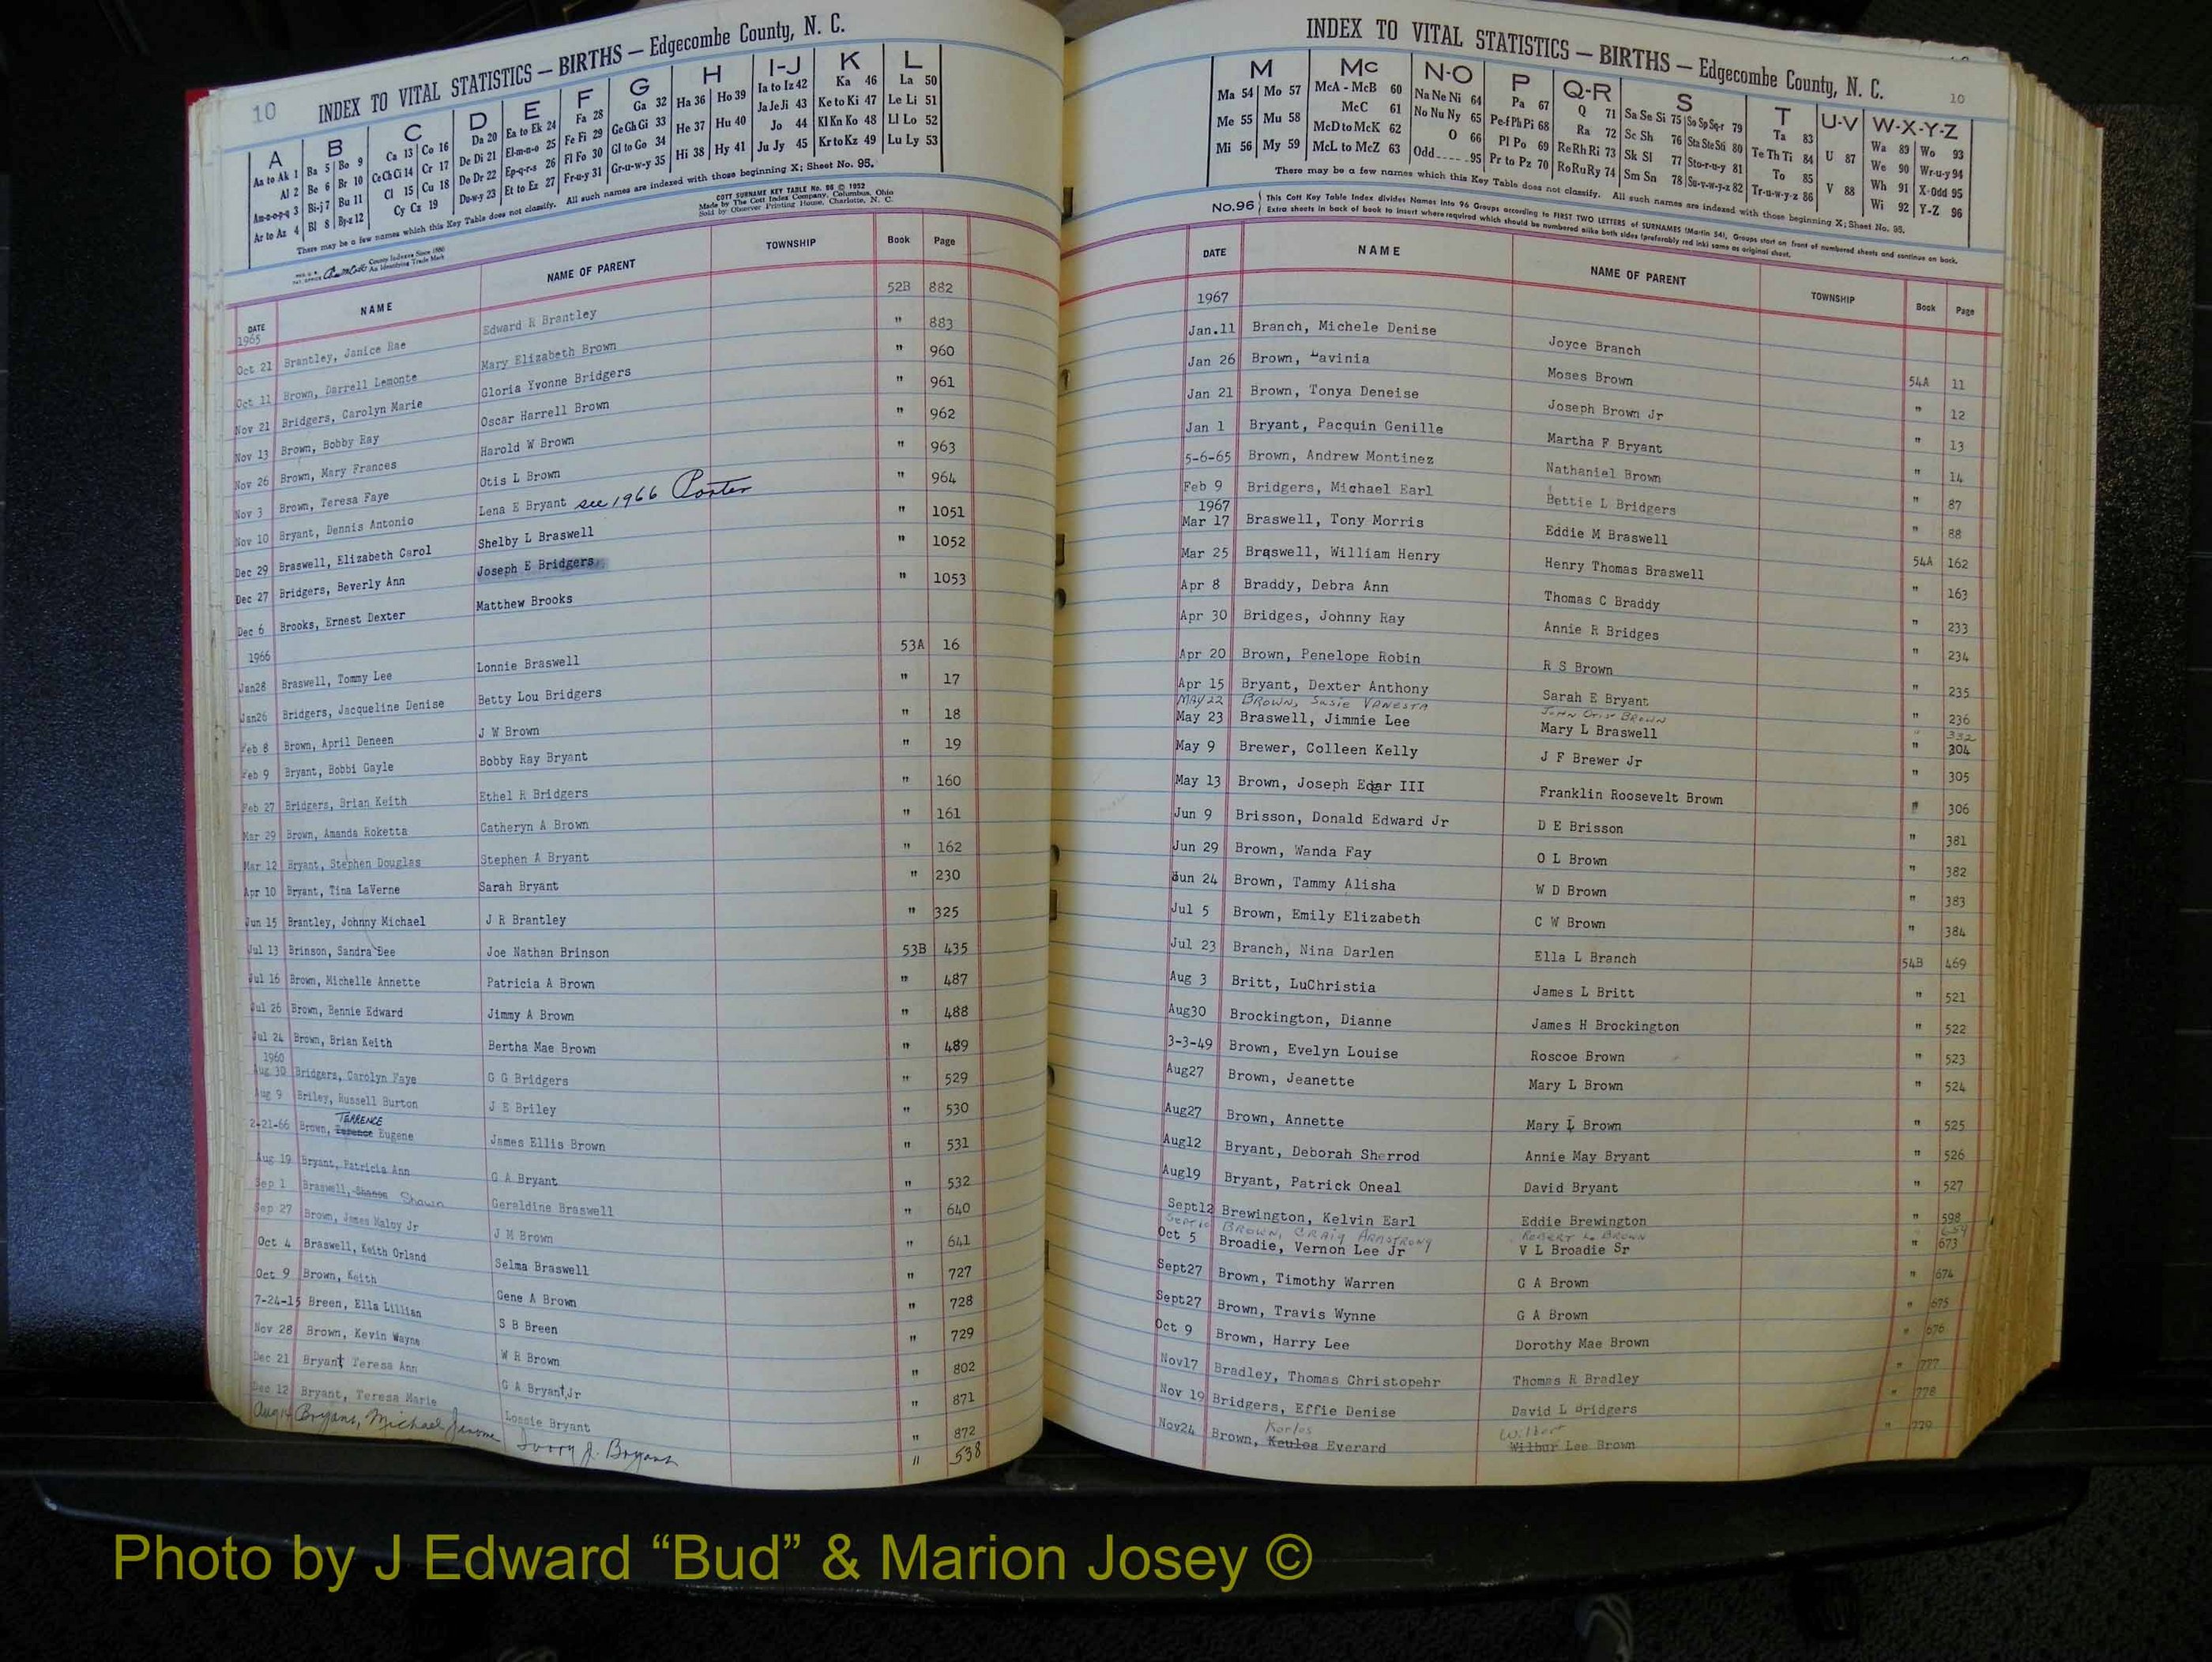 10 INDEX TO VITAL STATISTICS — BIRTHS — Edgecombe County, N. C.
A B C D E F G H I-J K L
Aa to Ak 1 Ba 5 Bo 9 Ca 13 Co 16 Da 20 Ea to Ek 24 Fa 28 Ga 32 Ha 36 Ho 39 Ia to Iz 42 Ka 46 La 50
Al 2 Be 6 Br 10 Ce Ch Ci 14 Cr 17 De Di 21 El-m-n-o 25 Fe Fi 29 Ge Gh Gi 33 He 37 Hu 40 Ja Je Ji 43 Ke to Ki 47 Le Li 51
Am-n-o-p-q 3 Bi-j 7 Bu 11 Cl 15 Cu 18 Do Dr 22 Ep-q-r-s 26 Fl Fo 30 Gl to Go 34 Hi 38 Hy 41 Jo 44 Kl Kn Ko 48 Ll Lo 52
Ar to Az 4 Bl 8 By-z 12 Cy Cz 19 Du-w-y 23 Et to Ez 27 Fr-u-y 31 Gr-u-w-y 35 Ju Jy 45 Kr to Kz 49 Lu Ly 53
There may be a few names which this Key Table does not classify. All such names are indexed with those beginning X; Sheet No. 95.
COTT SURNAME KEY TABLE No. 96 © 1952
Made by The Cott Index Company, Columbus, Ohio
Sold by Observer Printing House, Charlotte, N. C.
County Indexes Since 1888
An Identifying Trade Mark
DATE NAME NAME OF PARENT TOWNSHIP Book Page
1965
Oct 21 Brantley, Janice Rae Edward R Brantley 52B 882
Oct 11 Brown, Darrell Lemonte Mary Elizabeth Brown " 883
Nov 21 Bridgers, Carolyn Marie Gloria Yvonne Bridgers " 960
Nov 13 Brown, Bobby Ray Oscar Harrell Brown " 961
Nov 26 Brown, Mary Frances Harold W Brown " 962
Nov 3 Brown, Teresa Faye Otis L Brown " 963
Nov 10 Bryant, Dennis Antonio Lena E Bryant see 1966 Porter " 964
Dec 29 Braswell, Elizabeth Carol Shelby L Braswell " 1051
Dec 27 Bridgers, Beverly Ann Joseph E Bridgers " 1052
Dec 6 Brooks, Ernest Dexter Matthew Brooks " 1053
1966
Jan28 Braswell, Tommy Lee Lonnie Braswell 53A 16
Jan26 Bridgers, Jacqueline Denise Betty Lou Bridgers " 17
Feb 8 Brown, April Deneen J W Brown " 18
Feb 9 Bryant, Bobbi Gayle Bobby Ray Bryant " 19
Feb 27 Bridgers, Brian Keith Ethel R Bridgers " 160
Mar 29 Brown, Amanda Roketta Catheryn A Brown " 161
Mar 12 Bryant, Stephen Douglas Stephen A Bryant " 162
Apr 10 Bryant, Tina LaVerne Sarah Bryant " 230
Jun 15 Brantley, Johnny Michael J R Brantley " 325
Jul 13 Brinson, Sandra Dee Joe Nathan Brinson 53B 435
Jul 16 Brown, Michelle Annette Patricia A Brown " 487
Jul 26 Brown, Bennie Edward Jimmy A Brown " 488
Jul 24 Brown, Brian Keith Bertha Mae Brown " 489
1960
Aug 30 Bridgers, Carolyn Faye G G Bridgers " 529
Aug 9 Briley, Russell Burton J E Briley " 530
TERRENCE
2-21-66 Brown, Terence Eugene James Ellis Brown " 531
Aug 19 Bryant, Patricia Ann G A Bryant " 532
Sep 1 Braswell, Shawn Geraldine Braswell " 640
Sep 27 Brown, James Maloy Jr J M Brown " 641
Oct 4 Braswell, Keith Orland Selma Braswell " 727
Oct 9 Brown, Keith Gene A Brown " 728
7-24-15 Breen, Ella Lillian S B Breen " 729
Nov 28 Brown, Kevin Wayne W R Brown " 802
Dec 21 Bryant Teresa Ann G A Bryant, Jr " 871
Dec 12 Bryant, Teresa Marie Lossie Bryant " 872
Aug 14 Bryant, Michael Jerome Ivory J. Bryant " 538
INDEX TO VITAL STATISTICS — BIRTHS — Edgecombe County, N. C. 10
M Mc N-O P Q-R S T U-V W-X-Y-Z
Ma 54 Mo 57 McA - McB 60 Na Ne Ni 64 Pa 67 Q 71 Sa Se Si 75 So Sp Sq-r 79 Ta 83 Wa 89 Wo 93
Me 55 Mu 58 McC 61 No Nu Ny 65 Pe-f Ph Pi 68 Ra 72 Sc Sh 76 Sta Ste Sti 80 Te Th Ti 84 U 87 We 90 Wr-u-y 94
Mi 56 My 59 McD to McK 62 O 66 Pl Po 69 Re Rh Ri 73 Sk Sl 77 Sto-r-u-y 81 To 85 V 88 Wh 91 X-Odd 95
McL to McZ 63 Odd 95 Pr to Pz 70 Ro Ru Ry 74 Sm Sn 78 Su-v-w-y-z 82 Tr-u-w-y-z 86 Wi 92 Y-Z 96
There may be a few names which this Key Table does not classify. All such names are indexed with those beginning X; Sheet No. 95.
No.96 This Cott Key Table Index divides Names into 96 Groups according to FIRST TWO LETTERS of SURNAMES (Martin 54). Groups start on front of numbered sheets and continue on back.
Extra sheets in back of book to insert where required which should be numbered alike both sides (preferably red ink) same as original sheet.
DATE NAME NAME OF PARENT TOWNSHIP Book Page
1967
Jan.11 Branch, Michele Denise Joyce Branch 54A 11
Jan 26 Brown, Lavinia Moses Brown " 12
Jan 21 Brown, Tonya Deneise Joseph Brown Jr " 13
Jan 1 Bryant, Pacquin Genille Martha F Bryant " 14
5-6-65 Brown, Andrew Montinez Nathaniel Brown " 87
Feb 9 Bridgers, Michael Earl Bettie L Bridgers " 88
1967
Mar 17 Braswell, Tony Morris Eddie M Braswell 54A 162
Mar 25 Braswell, William Henry Henry Thomas Braswell " 163
Apr 8 Braddy, Debra Ann Thomas C Braddy " 233
Apr 30 Bridges, Johnny Ray Annie R Bridges " 234
Apr 20 Brown, Penelope Robin R S Brown " 235
Apr 15 Bryant, Dexter Anthony Sarah E Bryant " 236
MAY 22 BROWN, SUSIE VANESTA JOHN OTIS BROWN " 332
May 23 Braswell, Jimmie Lee Mary L Braswell " 304
May 9 Brewer, Colleen Kelly J F Brewer Jr " 305
May 13 Brown, Joseph Edgar III Franklin Roosevelt Brown " 306
Jun 9 Brisson, Donald Edward Jr D E Brisson " 381
Jun 29 Brown, Wanda Fay O L Brown " 382
Jun 24 Brown, Tammy Alisha W D Brown " 383
Jul 5 Brown, Emily Elizabeth C W Brown " 384
Jul 23 Branch, Nina Darlen Ella L Branch 54B 469
Aug 3 Britt, LuChristia James L Britt " 521
Aug30 Brockington, Dianne James H Brockington " 522
3-3-49 Brown, Evelyn Louise Roscoe Brown " 523
Aug27 Brown, Jeanette Mary L Brown " 524
Aug27 Brown, Annette Mary L Brown " 525
Aug12 Bryant, Deborah Sherrod Annie May Bryant " 526
Aug19 Bryant, Patrick Oneal David Bryant " 527
Sept12 Brewington, Kelvin Earl Eddie Brewington " 598
Sept 10 BROWN, CRAIG ARMSTRONG ROBERT L. BROWN 659
Oct 5 Broadie, Vernon Lee Jr V L Broadie Sr " 673
Sept27 Brown, Timothy Warren G A Brown " 674
Sept27 Brown, Travis Wynne G A Brown " 675
Oct 9 Brown, Harry Lee Dorothy Mae Brown " 676
Nov17 Bradley, Thomas Christopehr Thomas R Bradley " 777
Nov 19 Bridgers, Effie Denise David L Bridgers " 778
Karlos Wilbert
Nov24 Brown, Keulos Everard Wilbur Lee Brown " 779
Photo by J Edward “Bud” & Marion Josey ©